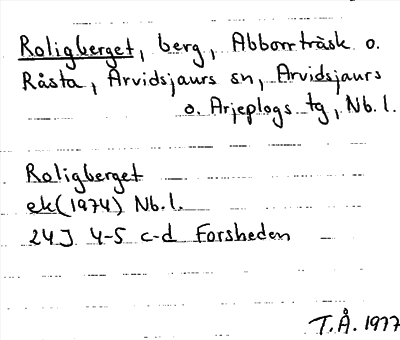 Roligberget, berg, Abborrträsk o.
Råsta, Arvidsjaurs sn, Arvidsjaurs
o. Arjeplogs tg, Nb. l.
Roligberget
ek (1974) Nb. l.
24J 4-5 c-d Forsheden
T.Å. 1977